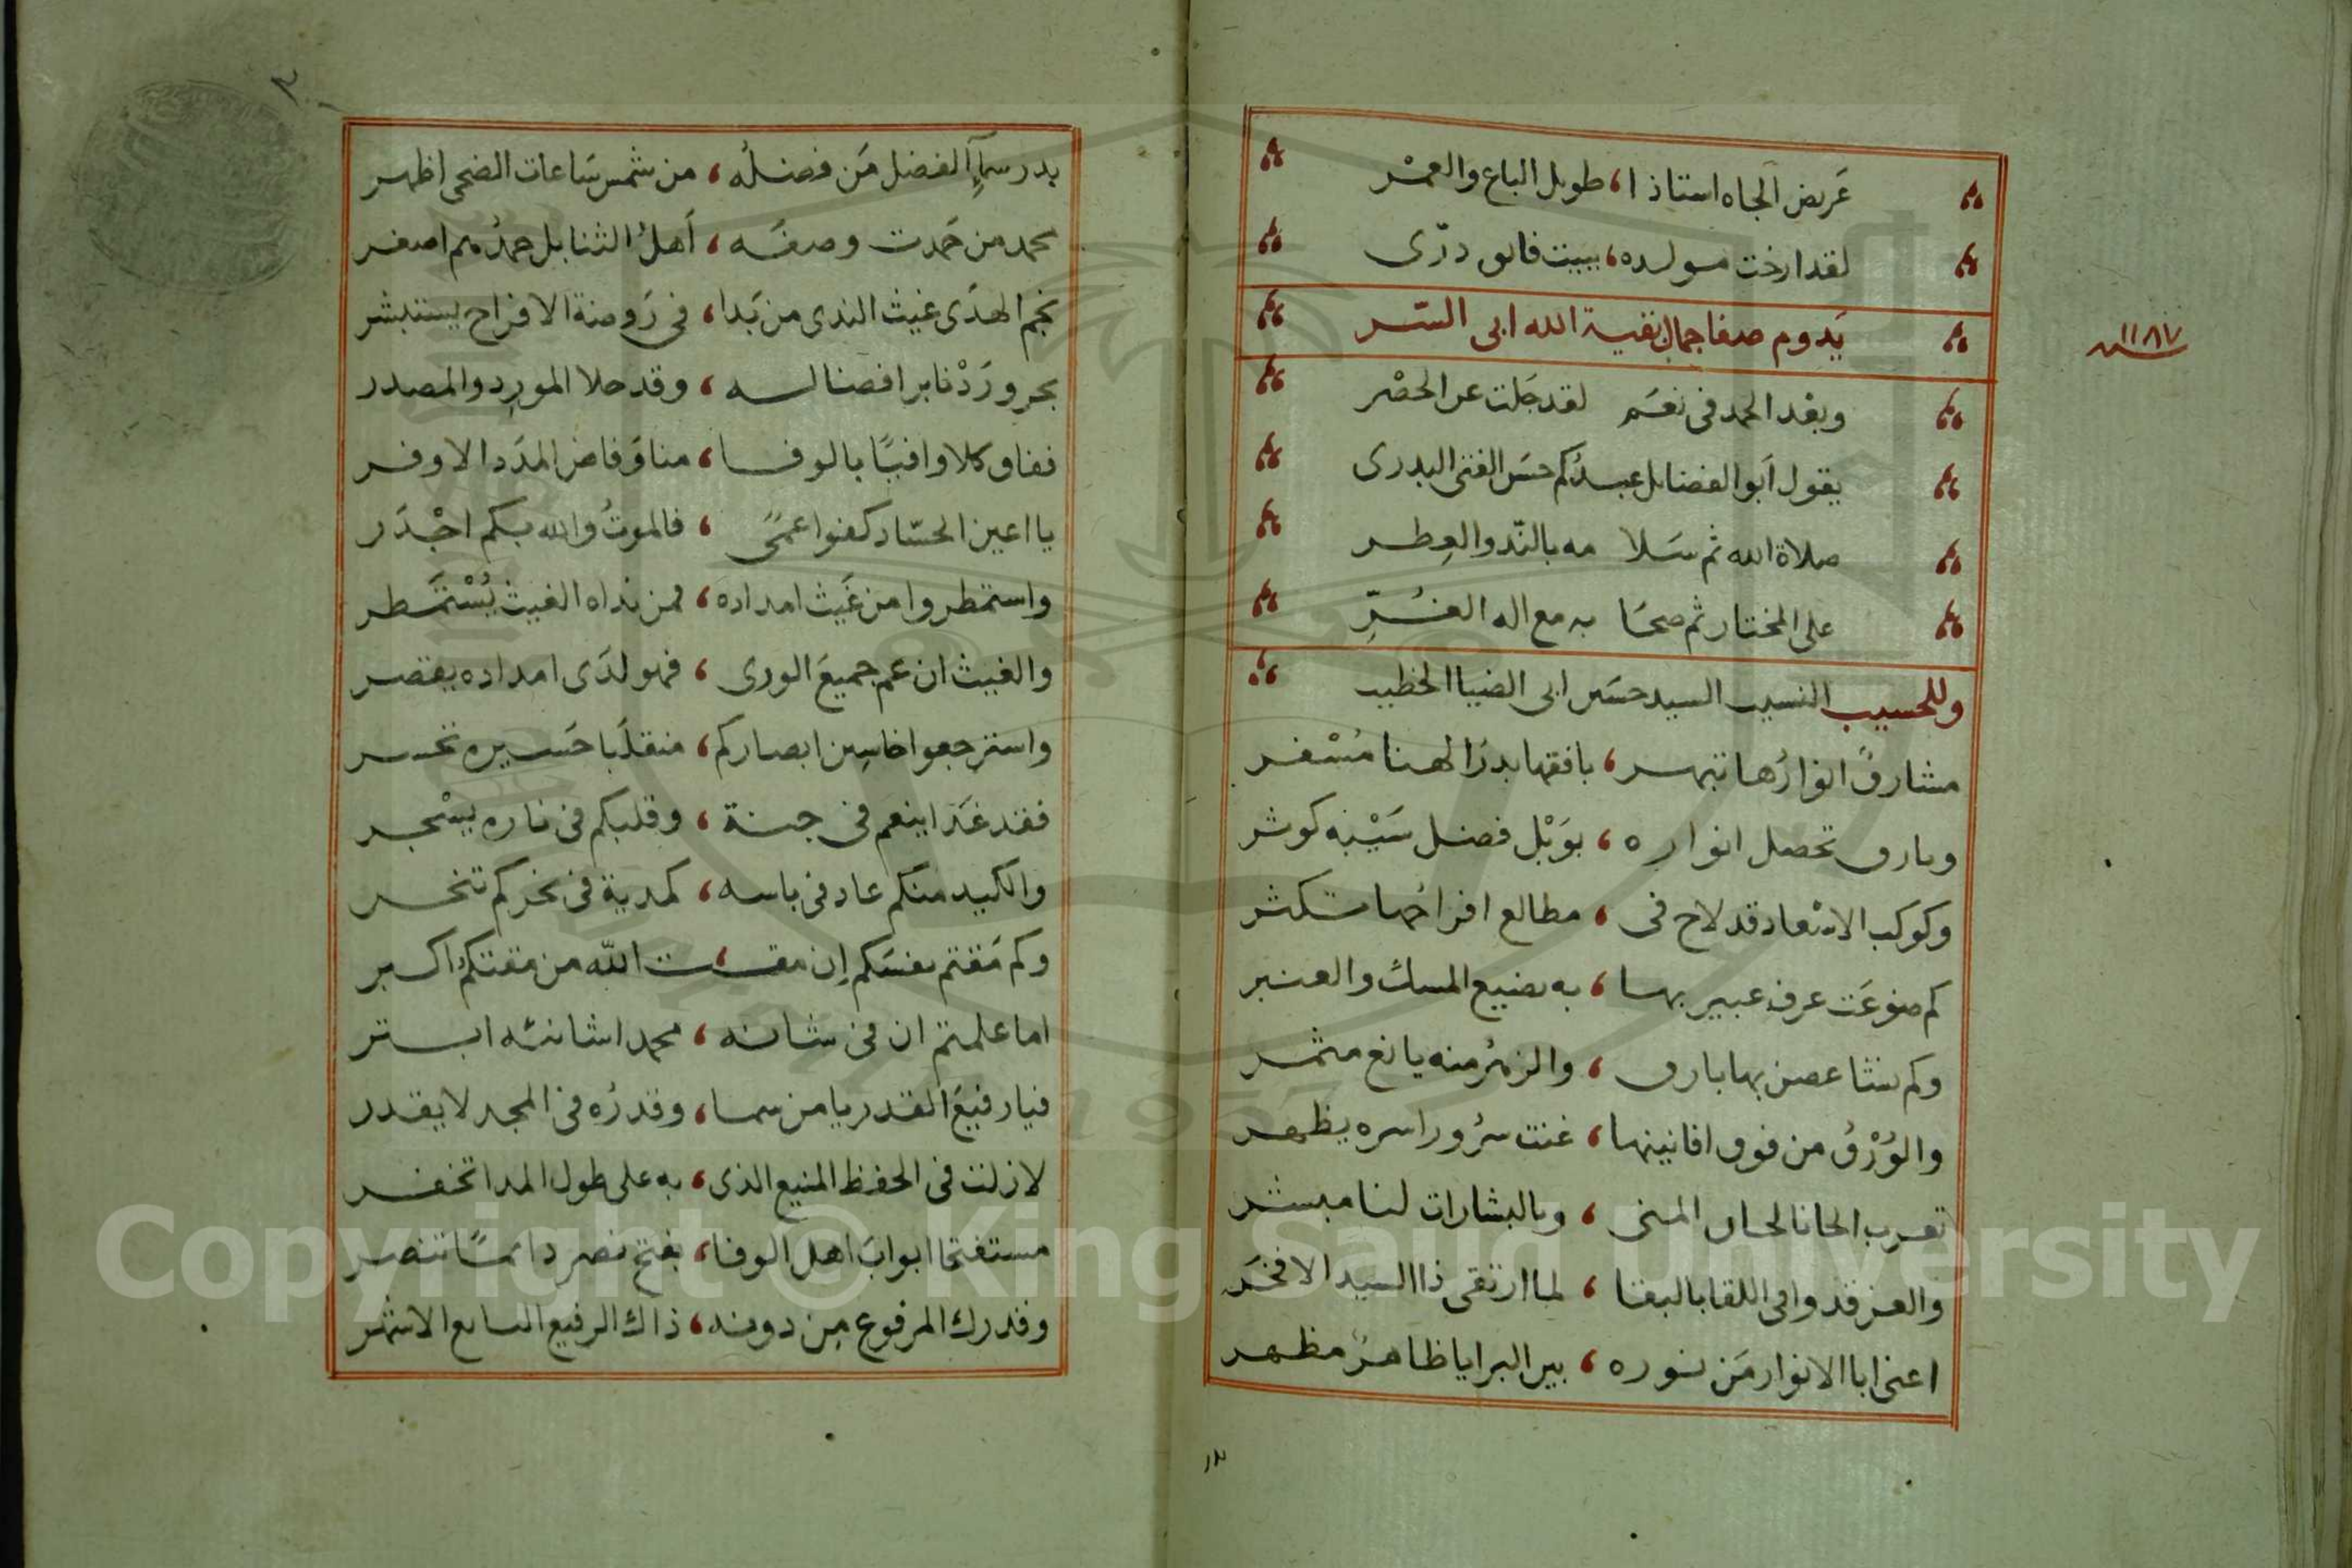 عَريض الجاه استاذا، طويل الباع والعمْر
لقد ارخت مولده، ببيت فاق درّى
يَدوم صفا جمال بقية الله ابى السّر
سنة ١١٨٧
وبعْد الحمد فى نعَم لقد جَلت عن الحصْر
يقول اَبو الفضايل عبدُكم حسَن الفتى البدرى
صلاة الله ثم سَلا مه بالنّد والعِطر
على المختار ثم صحَا به مع اله الغُرِّ
وللحسيب النسيب السيد حسَين ابى الضيا الخطيب
مشارقٌ انوارُها تبهر، بافقها بدرُ الهنا مُسْفر
وبارق تحصل انواره، بوَبْل فضل سَيْبه كوثر
وكوكب الاسْعاد قد لاح فى، مطالع افراحُها تكثر
كم ضوعَت عرف عبير بها، به يضيع المسك والعنبر
وكم نشا غصن بها بارق، والزهرُ منه يانع مثمر
والوُرْقُ من فوق افانينها، غنت سرُورا سره يظهر
تعرب الحانا لحان المنى، وبالبشارات لنا مبشر
والعز قد وافى اللقا بالبقا، لما ارتقى ذا السيد الافخَر
اعنى ابا الانوار مَن نوره، بين البرايا ظاهرٌ مظهر
بدر
٣
بدر سمآءِ الفضل مَن فضلُه، من شمس سَاعات الضحى اظهر
محمد من حَمدت وصفَه، اَهلُ الثنا بل حمدُهم اصغر
نجم الهدَى غيث الندى من بَدا، فى رَوضة الافراح يستبشر
بحر ورَدْنا بر افضاله، وقد حلا المورِد والمصدر
ففاق كلا وافيًا بالوفا، منا وَفاض المدَد الاوفر
يا اعين الحسّاد كفوا عمىً، فالموتُ والله بكم اجْدَر
واستمطروا من غَيث امداده، فمن نداه الغيث يُسْتَمطر
والغيث ان عم جميعَ الورى، فهو لدَى امداده يقصر
واسترجعوا خاسِين ابصاركم، منقلَبا حَسيره تحسر
فقد غَدَا ينعم فى جنة، وقلبكم فى ناره يسْجر
والكيد منكم عاد فى باسه، كمدية فى نحركم تنحر
وكم مَقتم نفسَكم اِن مقـ،ـت اللّه من مقتكم اكبر
اما علمتم ان فى شانه، محمد اشانئه ابتر
فيا رفيعَ القدر يا من سما، وقدرُه فى المجد لا يقدر
لازلت فى الحفظ المنيع الذى، به على طول المدا تخفر
مستفتحا ابوابَ اهل الوفا، بفتح نصر دائمًا تنصر
وقدرك المرفوع مِن دونه، ذاك الرفيع السابع الاشهر
Copyright © King Saud University
1957